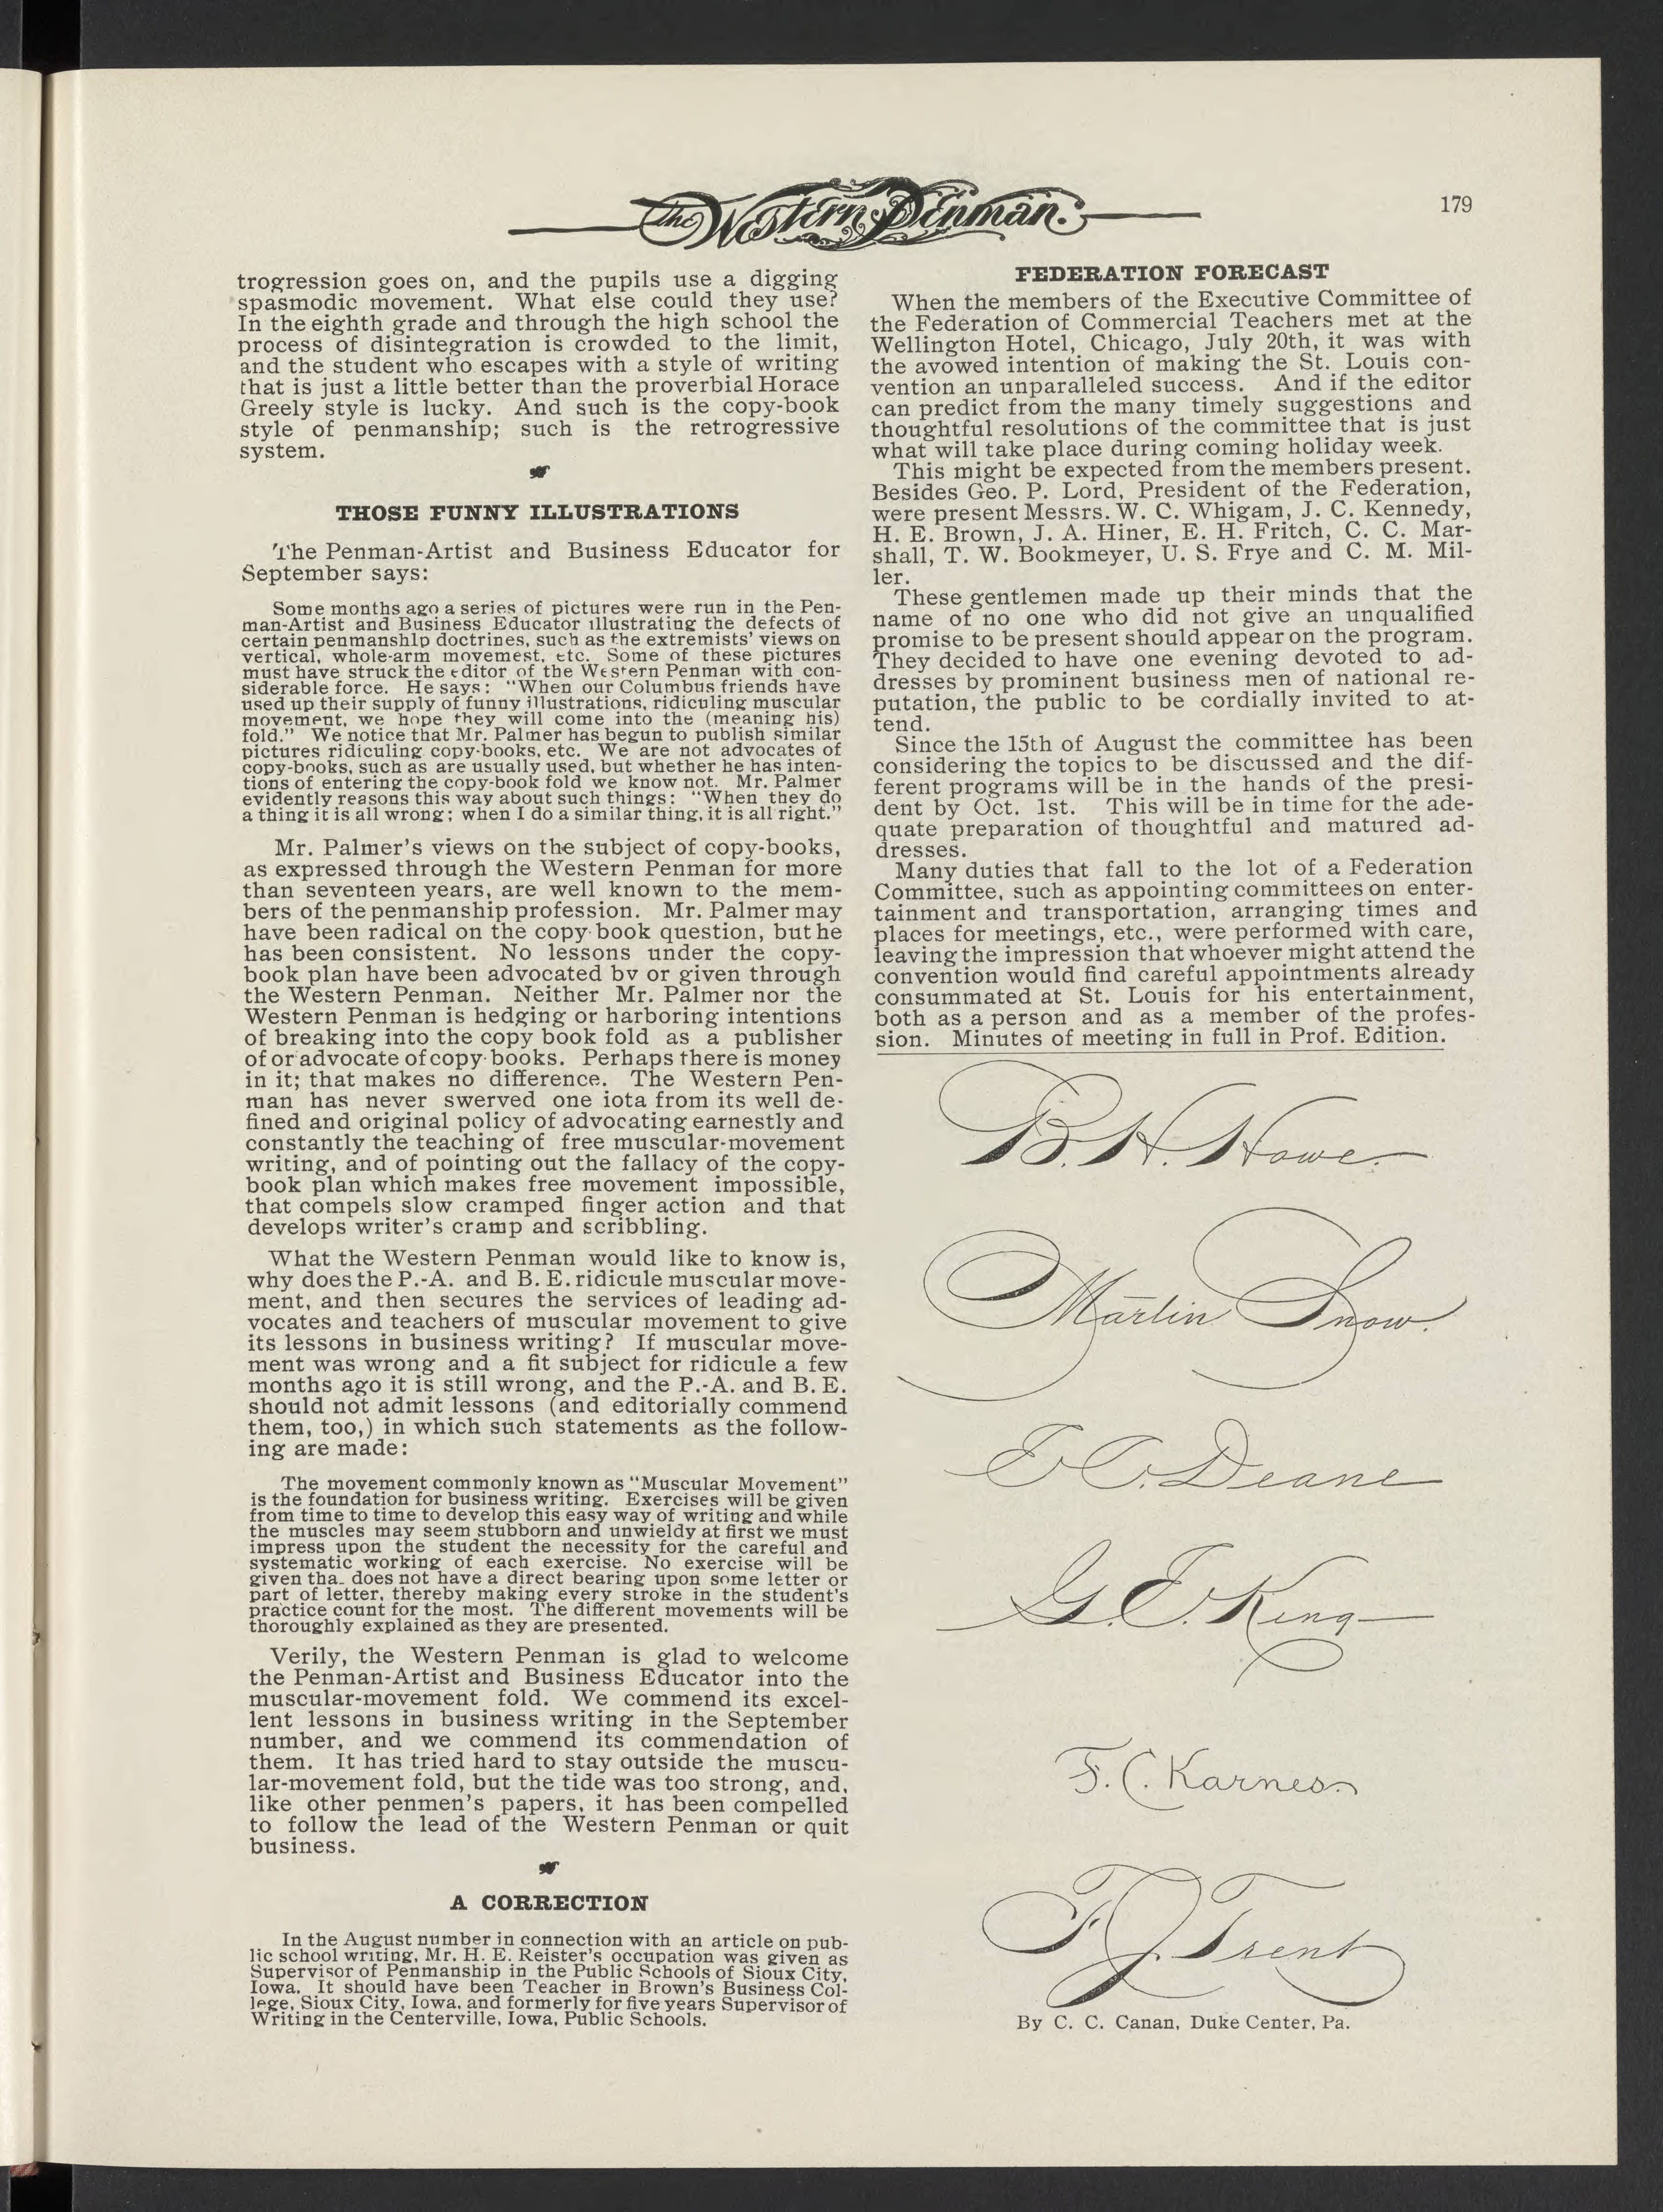 The Western Penman.
179
trogression goes on, and the pupils use a digging
spasmodic movement. What else could they use?
In the eighth grade and through the high school the
process of disintegration is crowded to the limit,
and the student who escapes with a style of writing
that is just a little better than the proverbial Horace
Greely style is lucky. And such is the copy-book
style of penmanship; such is the retrogressive
system.
THOSE FUNNY ILLUSTRATIONS
The Penman-Artist and Business Educator for
September says:
Some months ago a series of pictures were run in the Pen-
man-Artist and Business Educator illustrating the defects of
certain penmanship doctrines, such as the extremists' views on
vertical, whole-arm movement, etc. Some of these pictures
must have struck the editor of the Western Penman with con-
siderable force. He says: "When our Columbus friends have
used up their supply of funny illustrations, ridiculing muscular
movement, we hope they will come into the (meaning his)
fold." We notice that Mr. Palmer has begun to publish similar
pictures ridiculing copy-books, etc. We are not advocates of
copy-books, such as are usually used, but whether he has inten-
tions of entering the copy-book fold we know not. Mr. Palmer
evidently reasons this way about such things: "When they do
a thing it is all wrong; when I do a similar thing, it is all right."
Mr. Palmer's views on the subject of copy-books,
as expressed through the Western Penman for more
than seventeen years, are well known to the mem-
bers of the penmanship profession. Mr. Palmer may
have been radical on the copy-book question, but he
has been consistent. No lessons under the copy-
book plan have been advocated by or given through
the Western Penman. Neither Mr. Palmer nor the
Western Penman is hedging or harboring intentions
of breaking into the copy book fold as a publisher
of or advocate of copy-books. Perhaps there is money
in it; that makes no difference. The Western Pen-
man has never swerved one iota from its well de-
fined and original policy of advocating earnestly and
constantly the teaching of free muscular-movement
writing, and of pointing out the fallacy of the copy-
book plan which makes free movement impossible,
that compels slow cramped finger action and that
develops writer's cramp and scribbling.
What the Western Penman would like to know is,
why does the P.-A. and B. E. ridicule muscular move-
ment, and then secures the services of leading ad-
vocates and teachers of muscular movement to give
its lessons in business writing? If muscular move-
ment was wrong and a fit subject for ridicule a few
months ago it is still wrong, and the P.-A. and B. E.
should not admit lessons (and editorially commend
them, too,) in which such statements as the follow-
ing are made:
The movement commonly known as "Muscular Movement"
is the foundation for business writing. Exercises will be given
from time to time to develop this easy way of writing and while
the muscles may seem stubborn and unwieldy at first we must
impress upon the student the necessity for the careful and
systematic working of each exercise. No exercise will be
given tha_ does not have a direct bearing upon some letter or
part of letter, thereby making every stroke in the student's
practice count for the most. The different movements will be
thoroughly explained as they are presented.
Verily, the Western Penman is glad to welcome
the Penman-Artist and Business Educator into the
muscular-movement fold. We commend its excel-
lent lessons in business writing in the September
number, and we commend its commendation of
them. It has tried hard to stay outside the muscu-
lar-movement fold, but the tide was too strong, and,
like other penmen's papers, it has been compelled
to follow the lead of the Western Penman or quit
business.
A CORRECTION
In the August number in connection with an article on pub-
lic school writing, Mr. H. E. Reister's occupation was given as
Supervisor of Penmanship in the Public Schools of Sioux City,
Iowa. It should have been Teacher in Brown's Business Col-
lege, Sioux City, Iowa, and formerly for five years Supervisor of
Writing in the Centerville, Iowa, Public Schools.
FEDERATION FORECAST
When the members of the Executive Committee of
the Federation of Commercial Teachers met at the
Wellington Hotel, Chicago, July 20th, it was with
the avowed intention of making the St. Louis con-
vention an unparalleled success. And if the editor
can predict from the many timely suggestions and
thoughtful resolutions of the committee that is just
what will take place during coming holiday week.
This might be expected from the members present.
Besides Geo. P. Lord, President of the Federation,
were present Messrs. W. C. Whigam, J. C. Kennedy,
H. E. Brown, J. A. Hiner, E. H. Fritch, C. C. Mar-
shall, T. W. Bookmeyer, U. S. Frye and C. M. Mil-
ler.
These gentlemen made up their minds that the
name of no one who did not give an unqualified
promise to be present should appear on the program.
They decided to have one evening devoted to ad-
dresses by prominent business men of national re-
putation, the public to be cordially invited to at-
tend.
Since the 15th of August the committee has been
considering the topics to be discussed and the dif-
ferent programs will be in the hands of the presi-
dent by Oct. 1st. This will be in time for the ade-
quate preparation of thoughtful and matured ad-
dresses.
Many duties that fall to the lot of a Federation
Committee, such as appointing committees on enter-
tainment and transportation, arranging times and
places for meetings, etc., were performed with care,
leaving the impression that whoever might attend the
convention would find careful appointments already
consummated at St. Louis for his entertainment,
both as a person and as a member of the profes-
sion. Minutes of meeting in full in Prof. Edition.
B. H. Howe.
Martin Snow.
E C. Deane
G. E. King
F. C. Karnes.
F. J. Trent
By C. C. Canan, Duke Center, Pa.